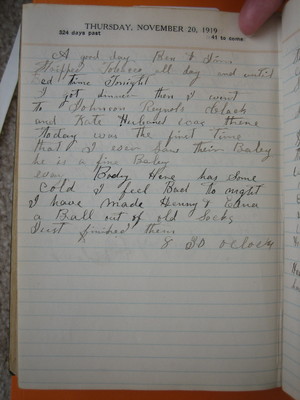 THURSDAY, NOVEMBER 20, 1919
324 days past 41 to come
A good day Ben & Irvin
Stripped Tobacco all day and until
ed time Tonight
I got dinner then I went
to Johnson Raynols
and Kate Husband was there
Today was the first time
that I ever saw their Baby
he is a fine Baby
Body Here has some
cold I feel Bad To night
I have made Henry & Edna
a Ball out of old Socks
Just finished them
8 30 oclock